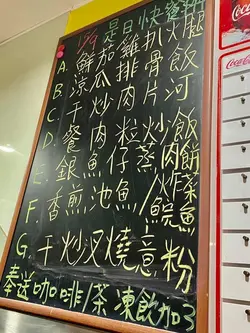 17/9 是日快餐
A. 鮮茄雞扒
B. 涼瓜排骨飯
C. 干炒肉片河
D. 餐肉粒炒飯
E. 銀魚仔蒸餅
F. 香煎池魚/炸菜鯇魚
G. 干炒叉燒意粉
奉送咖啡/茶 凍飲加3
Coca-Cola